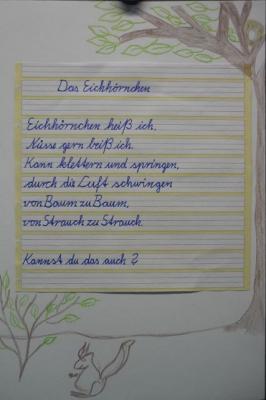 Das Eichhörnchen
Eichhörnchen heiß ich,
Nüsse gern beiß ich.
Kann klettern und springen,
durch die Luft schwingen
von Baum zu Baum,
von Strauch zu Strauch.
Kannst du das auch?